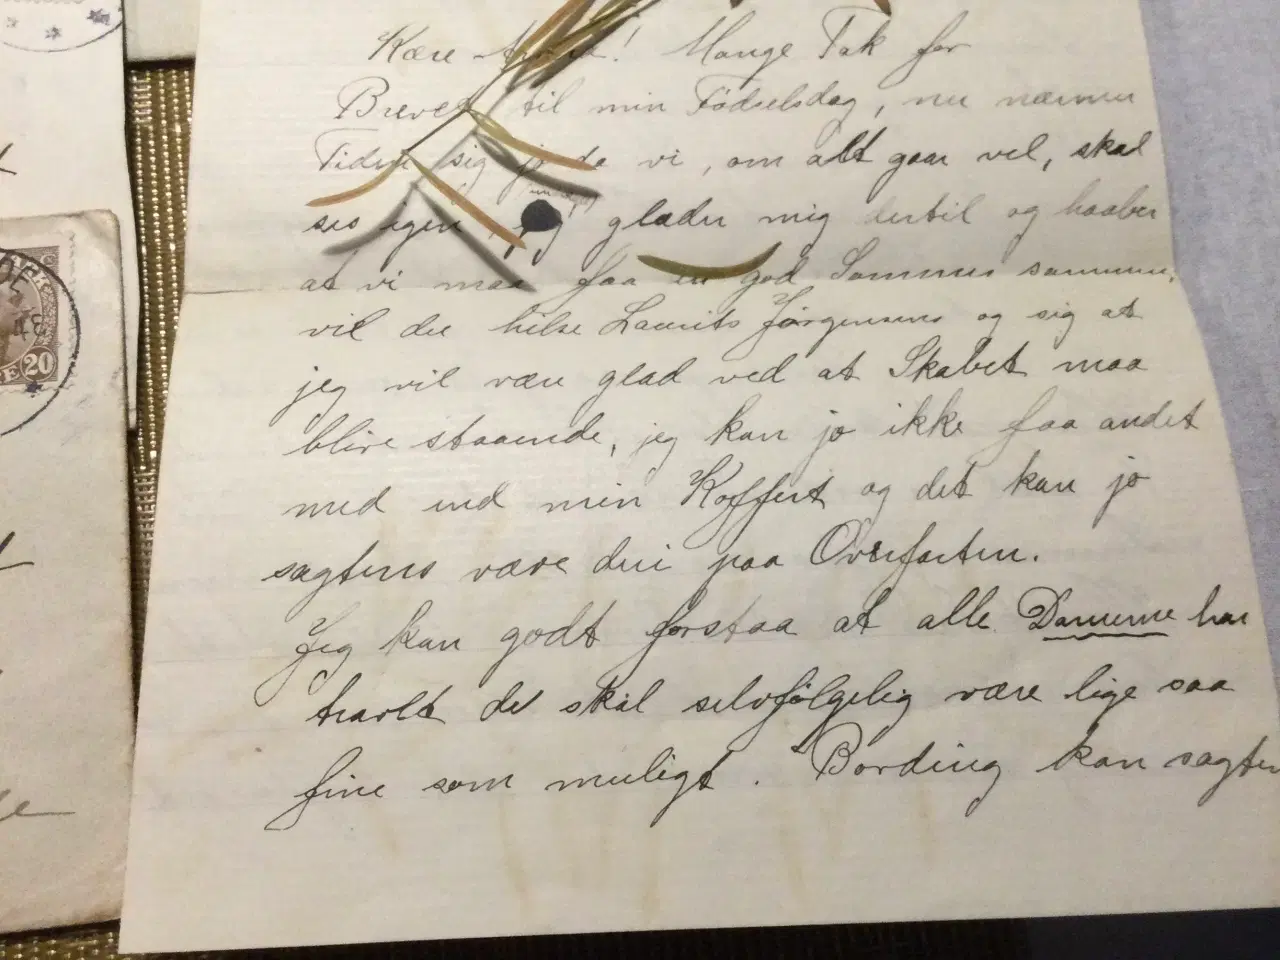 Kære ! Mange Tak for
Brevet til min Fødselsdag, nu nærmer
Tiden sig jo da vi, om alt gaar vel, skal
ses igen, jeg glæder mig dertil og haaber
at vi maa faa en god Sommer sammen,
vil du hilse Laurits Jørgensens og sig at
jeg vil være glad ved at Skabet maa
blive staaende, jeg kan jo ikke faa andet
med end min Koffert og det kan jo
sagtens være deri paa Overfarten.
Jeg kan godt forstaa at alle Damerne har
travlt de skal selvfølgelig være lige saa
fine som muligt. Bording kan sagten
20